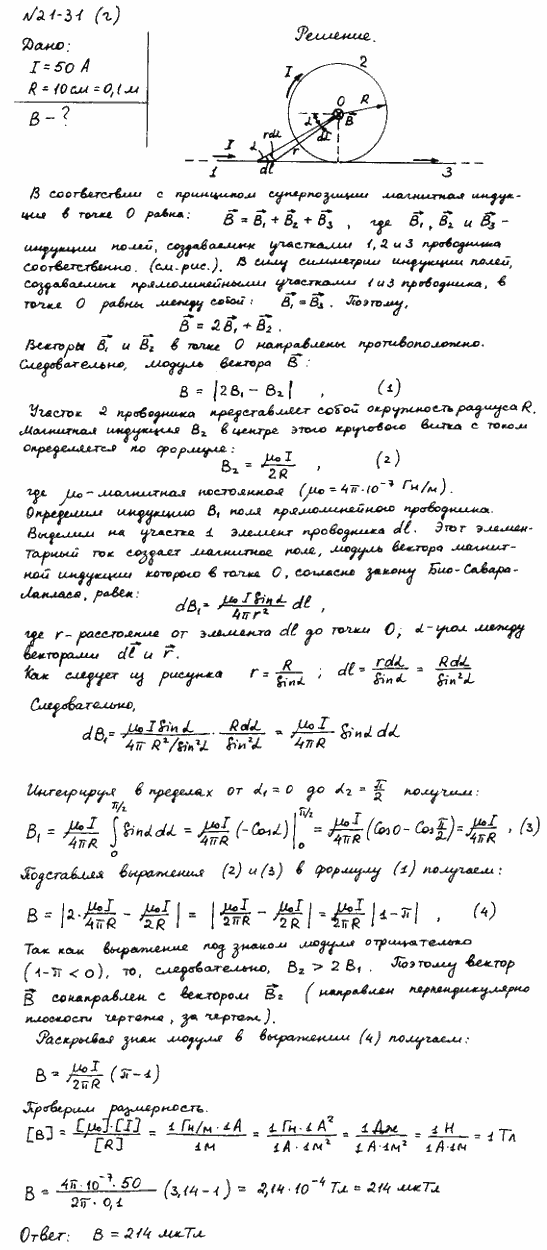 №21-31 (г)
Дано:
I = 50 А
R = 10 см = 0,1 м
B - ?
Решение.
I 2
O R
α B⃗
dα
rdα
I α r
1 dl 3
В соответствии с принципом суперпозиции магнитная индук-
ция в точке O равна: B⃗ = B⃗₁ + B⃗₂ + B⃗₃ , где B⃗₁, B⃗₂ и B⃗₃ -
индукции полей, создаваемых участками 1, 2 и 3 проводника
соответственно. (см. рис.). В силу симметрии индукции полей,
создаваемых прямолинейными участками 1 и 3 проводника, в
точке O равны между собой: B⃗₁ = B⃗₃. Поэтому,
B⃗ = 2B⃗₁ + B⃗₂ .
Векторы B⃗₁ и B⃗₂ в точке O направлены противоположно.
Следовательно, модуль вектора B⃗ :
B = |2B₁ - B₂| , (1)
Участок 2 проводника представляет собой окружность радиуса R.
Магнитная индукция B₂ в центре этого кругового витка с током
определяется по формуле:
B₂ = μ₀I/2R , (2)
где μ₀ - магнитная постоянная (μ₀ = 4π·10⁻⁷ Гн/м).
Определим индукцию B₁ поля прямолинейного проводника.
Выделим на участке 1 элемент проводника dl. Этот элемен-
тарный ток создает магнитное поле, модуль вектора магнит-
ной индукции которого в точке O, согласно закону Био-Савара-
Лапласа, равен:
dB₁ = μ₀ I Sinα/4πr² dl ,
где r - расстояние от элемента dl до точки O; α - угол между
векторами dl⃗ и r⃗.
Как следует из рисунка r = R/Sinα ; dl = rdα/Sinα = Rdα/Sin²α
Следовательно,
dB₁ = μ₀ I Sinα/4π R²/Sin²α · Rdα/Sin²α = μ₀ I/4πR Sinα dα
Интегрируя в пределах от α₁ = 0 до α₂ = π/2 получим:
B₁ = μ₀I/4πR ∫₀^(π/2) Sinα dα = μ₀I/4πR (-Cosα)|₀^(π/2) = μ₀I/4πR (Cos0 - Cos π/2) = μ₀I/4πR , (3)
Подставляя выражения (2) и (3) в формулу (1) получаем:
B = |2·μ₀I/4πR - μ₀I/2R| = |μ₀I/2πR - μ₀I/2R| = μ₀I/2πR |1-π| , (4)
Так как выражение под знаком модуля отрицательно
(1-π < 0), то, следовательно, B₂ > 2B₁. Поэтому вектор
B⃗ сонаправлен с вектором B⃗₂ (направлен перпендикулярно
плоскости чертежа, за чертеж).
Раскрывая знак модуля в выражении (4) получаем:
B = μ₀I/2πR (π-1)
Проверим размерность.
[B] = [μ₀]·[I]/[R] = 1 Гн/м · 1А/1м = 1 Гн · 1 А²/1А · 1м² = 1 Дж/1А·1м² = 1 Н/1А·1м = 1 Тл
B = 4π·10⁻⁷·50/2π·0,1 (3,14-1) = 2,14·10⁻⁴ Тл = 214 мкТл
Ответ: B = 214 мкТл